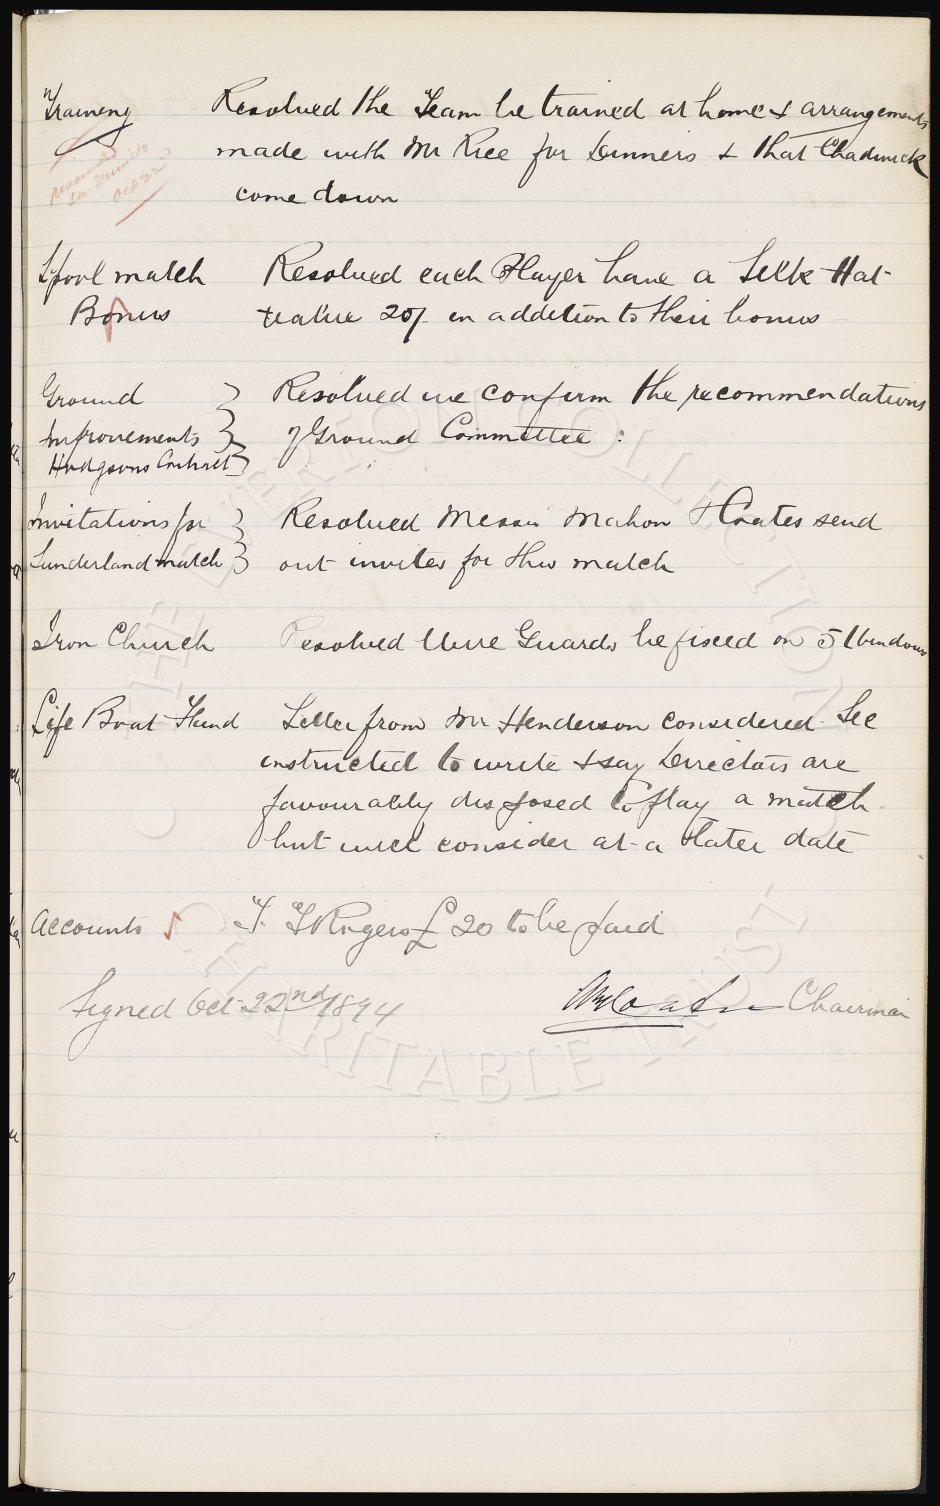 Training Resolved the Team be trained at home & arrangements
made with Mr Rice for Dinners & that Chadwick
come down
rescinded
see minute
Oct 22
L'pool match Resolved each Player have a Silk Hat
Bonus value 20/- in addition to their bonus
Ground Resolved we confirm the recommendations
Improvements of Ground Committee :
Hodgsons Contract
Invitations for Resolved Messrs Mahon & Coates send
Sunderland match out invites for this match
Iron Church Resolved Wire Guards be fixed on 5 Windows
Life Boat Fund Letter from Mr Henderson considered. Sec
instructed to write & say Directors are
favourably disposed to play a match
but will consider at a later date
Accounts T. Rogers £20 to be paid
Signed Oct 22nd 1894 Chairman
THE EVERTON COLLECTION
CHARITABLE TRUST